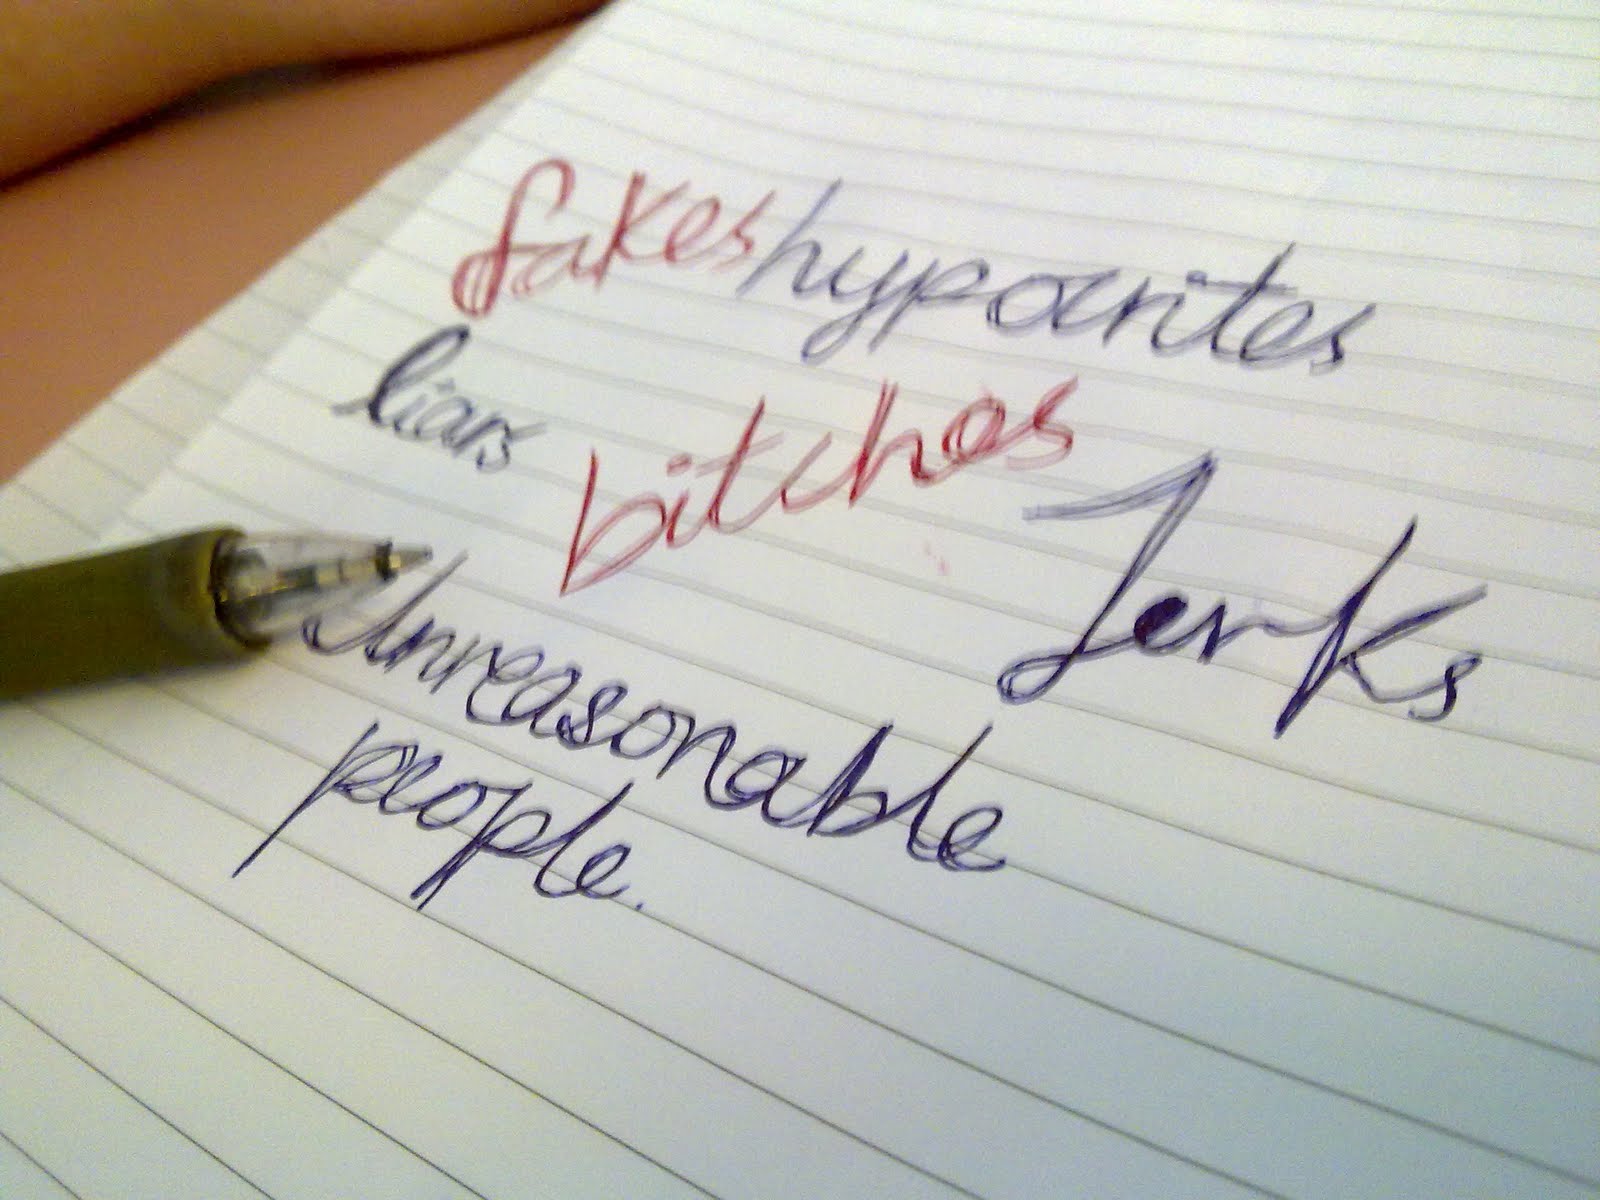 fakes hypocrites
liars bitches Jerks
Unreasonable
people.